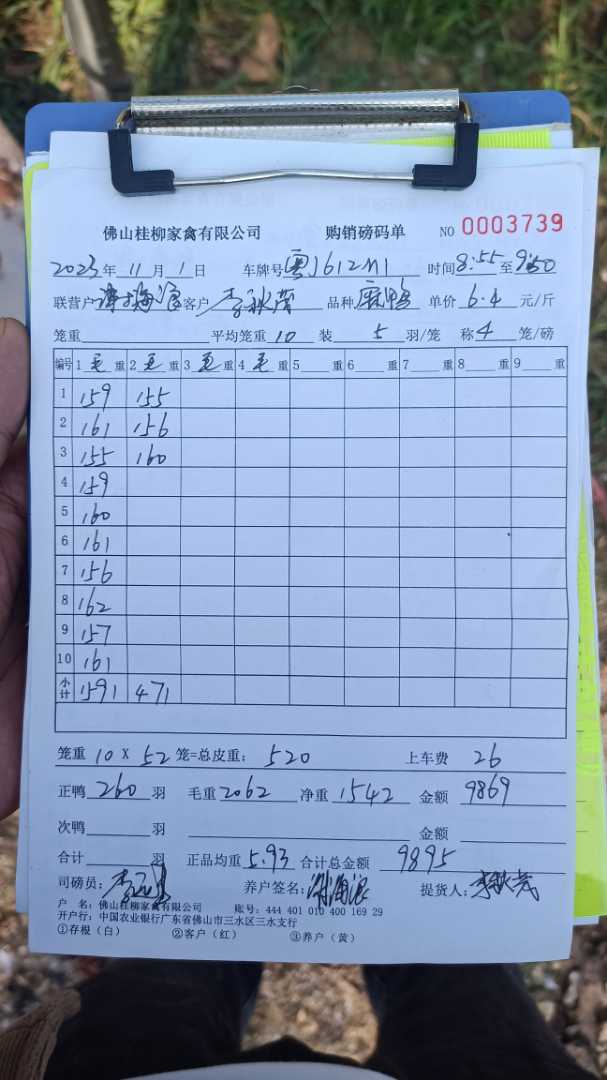 佛山桂柳家禽有限公司 购销磅码单 NO 0003739
2023年 11月 1日 车牌号(粤)612M1 时间8:55至9:50
联营户 谭海浪 客户 李秋茂 品种 麻鸭 单价 6.4 元/斤
笼重 平均笼重 10 装 5 羽/笼 称 4 笼/磅
编号 1 毛 重 2 毛 重 3 毛 重 4 毛 重 5 重 6 重 7 重 8 重 9 重
1 159 155
2 161 156
3 155 160
4 159
5 160
6 161
7 156
8 162
9 157
10 161
小计 1591 471
笼重 10 X 52 笼=总皮重: 520 上车费 26
正鸭 260 羽 毛重 2062 净重 1542 金额 9869
次鸭 羽 金额
合计 羽 正品均重 5.93 合计总金额 9895
司磅员: 养户签名: 提货人: 李秋茂
户 名: 佛山桂柳家禽有限公司 账号: 444 401 010 400 169 29
开户行: 中国农业银行广东省佛山市三水区三水支行
①存根(白) ②客户(红) ③养户(黄)